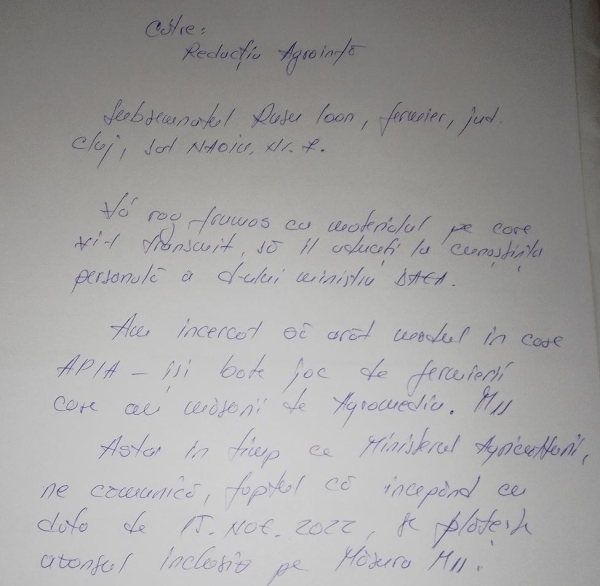 Către:
Redacția Agroinfo
Subsemnatul Rusu Ioan, fermier, jud.
Cluj, sat Nr. 7.
Vă rog frumos ca materialul pe care
vi-l transmit, să îl aduceți la cunoștința
personală a d-lui ministru DAEA.
Am încercat să arăt modul în care
APIA – își bate joc de fermierii
care au măsuri de Agromediu. M11
Asta în timp ce Ministerul Agriculturii,
ne comunică, faptul că începând cu
data de 15. NOE. 2022, se plătește
avansul inclusiv pe Măsura M11.